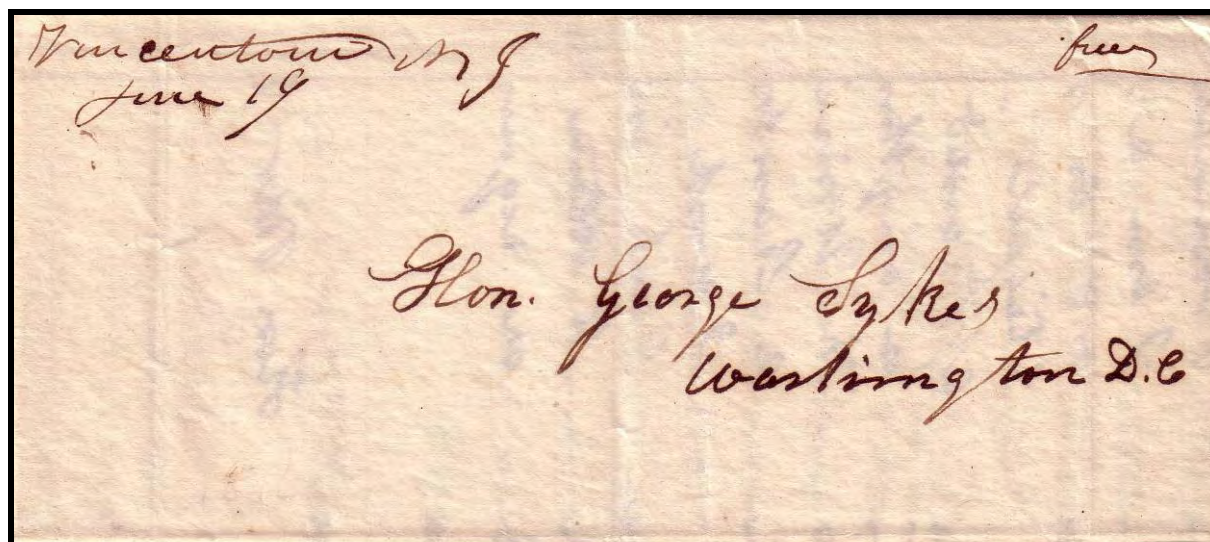 Vincentown N J
June 19
free
Hon. George Sykes
Washington D.C